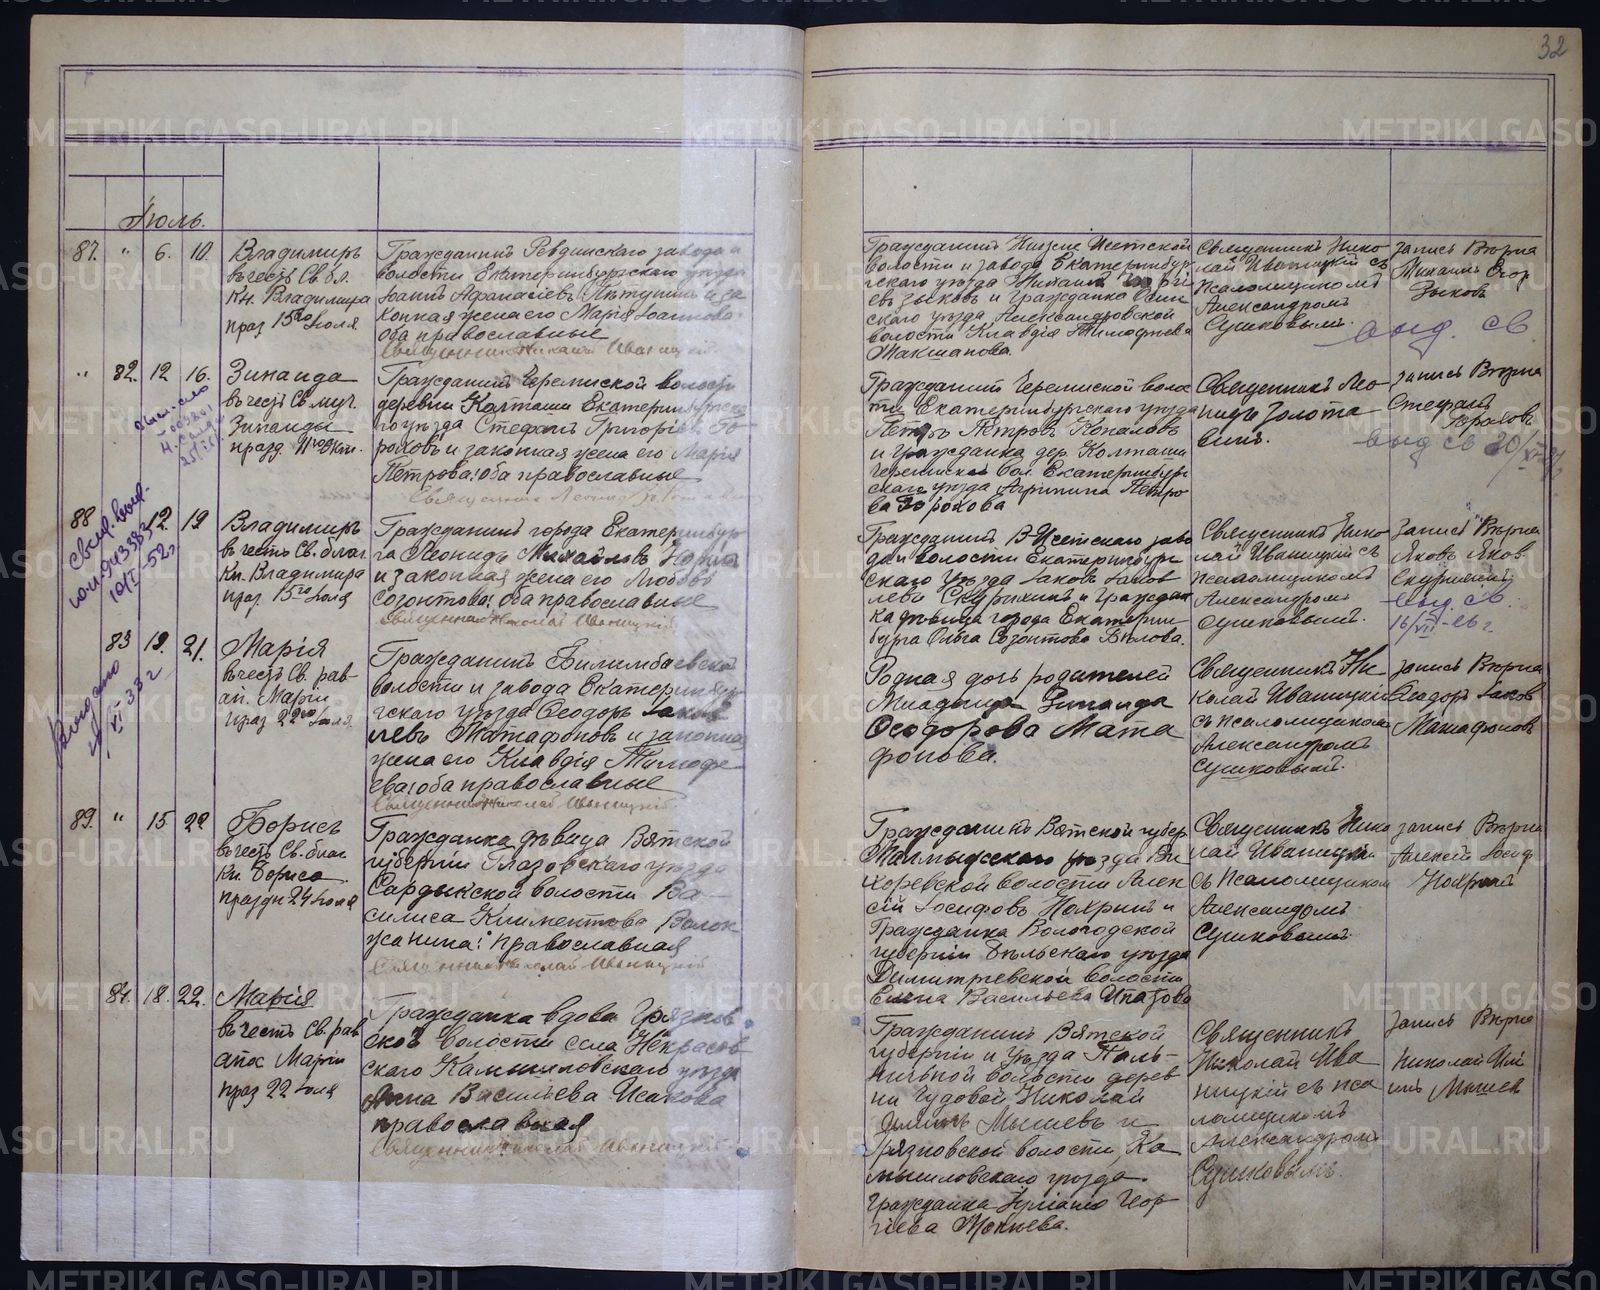 32
Іюль.
87. " 6. 10.
Владимиръ
въ честь Св. бл.
Кн. Владимира
праз. 15го Іюля
Гражданинъ Ревдинскаго завода и
волости Екатеринбургскаго уѣзда
Іоаннъ Афанасіевъ и за
конная жена его Марія Іоаннова:
оба православные
Священникъ Николай Иваницкій
Гражданинъ Нижне Исетской
волости и завода Екатеринбур
гскаго уѣзда Михаилъ
евъ Зыковъ и Гражданка Осин
скаго уѣзда Александровской
волости Клавдія Тимофѣева
Макшанова.
Священникъ Нико
лай Иваницкій съ
псаломщикомъ
Александромъ
Сушковымъ.
Запись Вѣрна
Михаилъ Егор
Зыковъ
выд. св.
" 82. 12 16.
Зинаида
въ честь Св. муч.
Зинаиды
празд. 11го Окт.
Гражданинъ Черемисской волости
деревни Колташи Екатеринбургска
го уѣзда Стефанъ Григорі Го
роховъ и законная жена его Марія
Петрова: оба православные
Священникъ Леонидъ
Гражданинъ Черемисской воло
сти Екатеринбургскаго уѣзда
Петръ Петровъ Копаловъ
и Гражданка дер. Колташи
Черемисской вол. Екатеринбур
скаго уѣзда Агрипина Петро
ва Горохова
Священникъ Лео
нидъ Золота
винъ.
Запись Вѣрна
Стефанъ
Гороховъ
выд св 20/
88 12. 19
свид. выд.
юл. 943383
10/I-52г
Владимиръ
въ честь Св. благ
Кн. Владимира
праз. 15го Іюля
Гражданинъ города Екатеринбур
га Леонидъ Михайловъ
и законная жена его Любовь
Созонтова: оба православные
Священникъ Николай Иваницкій
Гражданинъ В-Исетскаго заво
да и волости Екатеринбург
скаго Уѣзда Іаковъ Іаков
левъ Скурихинъ и Граждан
ка дѣвица города Екатерин
бурга Ольга Созонтова Бѣлова.
Священникъ Нико
лай Иваницкій съ
псаломщикомъ
Александромъ
Сушковымъ.
Запись Вѣрна
Яковъ Яков
Скурихинъ
выд. св.
16/VII-26г
83 19. 21.
Выдано
VI 33 г
Марія
въ честь Св. рав
ап. Маріи
праз 22го Іюля
Гражданинъ Билимбаевской
волости и завода Екатеринбур
гскаго уѣзда Ѳеодоръ Іаков
левъ Матафоновъ и законная
жена его Клавдія Тимофе
ева: оба православные
Священникъ Николай Иваницкій
Родная дочь родителей
Младенца Зинаида
Ѳеодорова Мата
фонова.
Священникъ Ни
колай Иваницкій
съ псаломщикомъ
Александромъ
Сушковымъ.
Запись Вѣрна
Ѳеодоръ Іаков
Матафоновъ
89. " 15 22
Борисъ
въ честь Св. благ
Кн. Бориса
праздн 24 Іюля
Гражданка дѣвица Вятской
губерніи Глазовскаго уѣзда
Сардыкской волости Ва-
силиса Климентова Волок
жанина: православная
Священникъ Николай Иваницкій
Гражданинъ Вятской губер
Малмыжскаго уѣзда Ви
хоревской волости Алек
сій Іосифовъ Нохринъ и
Гражданка Вологодской
губерніи Вельскаго уѣзда
Димитріевской волости
Елена Васильева Ипатова
Священникъ Нико
лай Иваницкій
съ Псаломщиком
Александромъ
Сушковымъ
Запись Вѣрна
Алексѣй Іосиф
Нохринъ
84. 18. 22.
Марія
въ честь Св. рав
апос Маріи
праз 22 Іюля
Гражданка вдова Грязнов
ской Волости села Некрасов
скаго Камышловскаго уѣзда
Анна Васильева Исакова
православная
Священникъ Николай Иваницкій
Гражданинъ Вятской
губерніи и уѣзда Паль-
ничной волости дерев
ни Чудовой Николай
Мышевъ и
Грязновской волости, Ка
мышловскаго уѣзда
Гражданка Іуліанія Геор
гіева Мокѣева.
Священникъ
Николай Ива
ницкій съ пса
ломщикомъ
Александромъ
Сушковымъ.
Запись Вѣрна
Николай
Мышев
METRIKI.GASO-URAL.RU